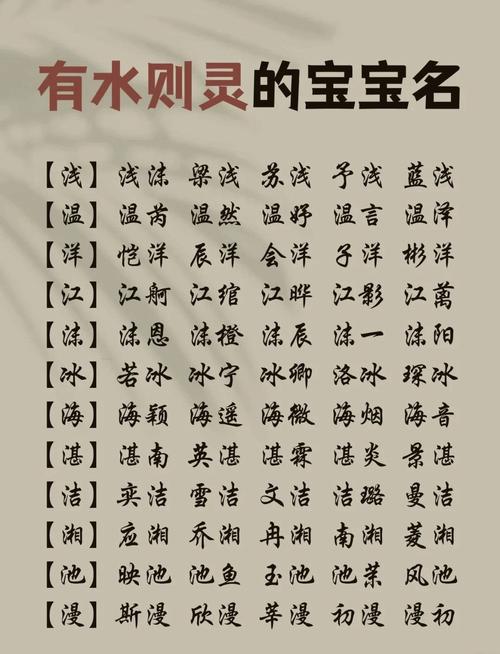 有水则灵的宝宝名
【浅】 浅沫 梁浅 苏浅 予浅 蓝浅
【温】 温芮 温然 温妤 温言 温泽
【洋】 恺洋 辰洋 会洋 子洋 彬洋
【江】 江舸 江绾 江晔 江影 江蓠
【沫】 沫恩 沫橙 沫辰 沫一 沫阳
【冰】 若冰 冰宁 冰卿 洛冰 琛冰
【海】 海颖 海遥 海微 海烟 海音
【湛】 湛南 英湛 湛霖 湛炎 景湛
【洁】 奕洁 雪洁 文洁 洁璐 曼洁
【湘】 应湘 乔湘 冉湘 南湘 菱湘
【池】 映池 池鱼 玉池 池茉 风池
【漫】 斯漫 欣漫 莘漫 初漫 漫初